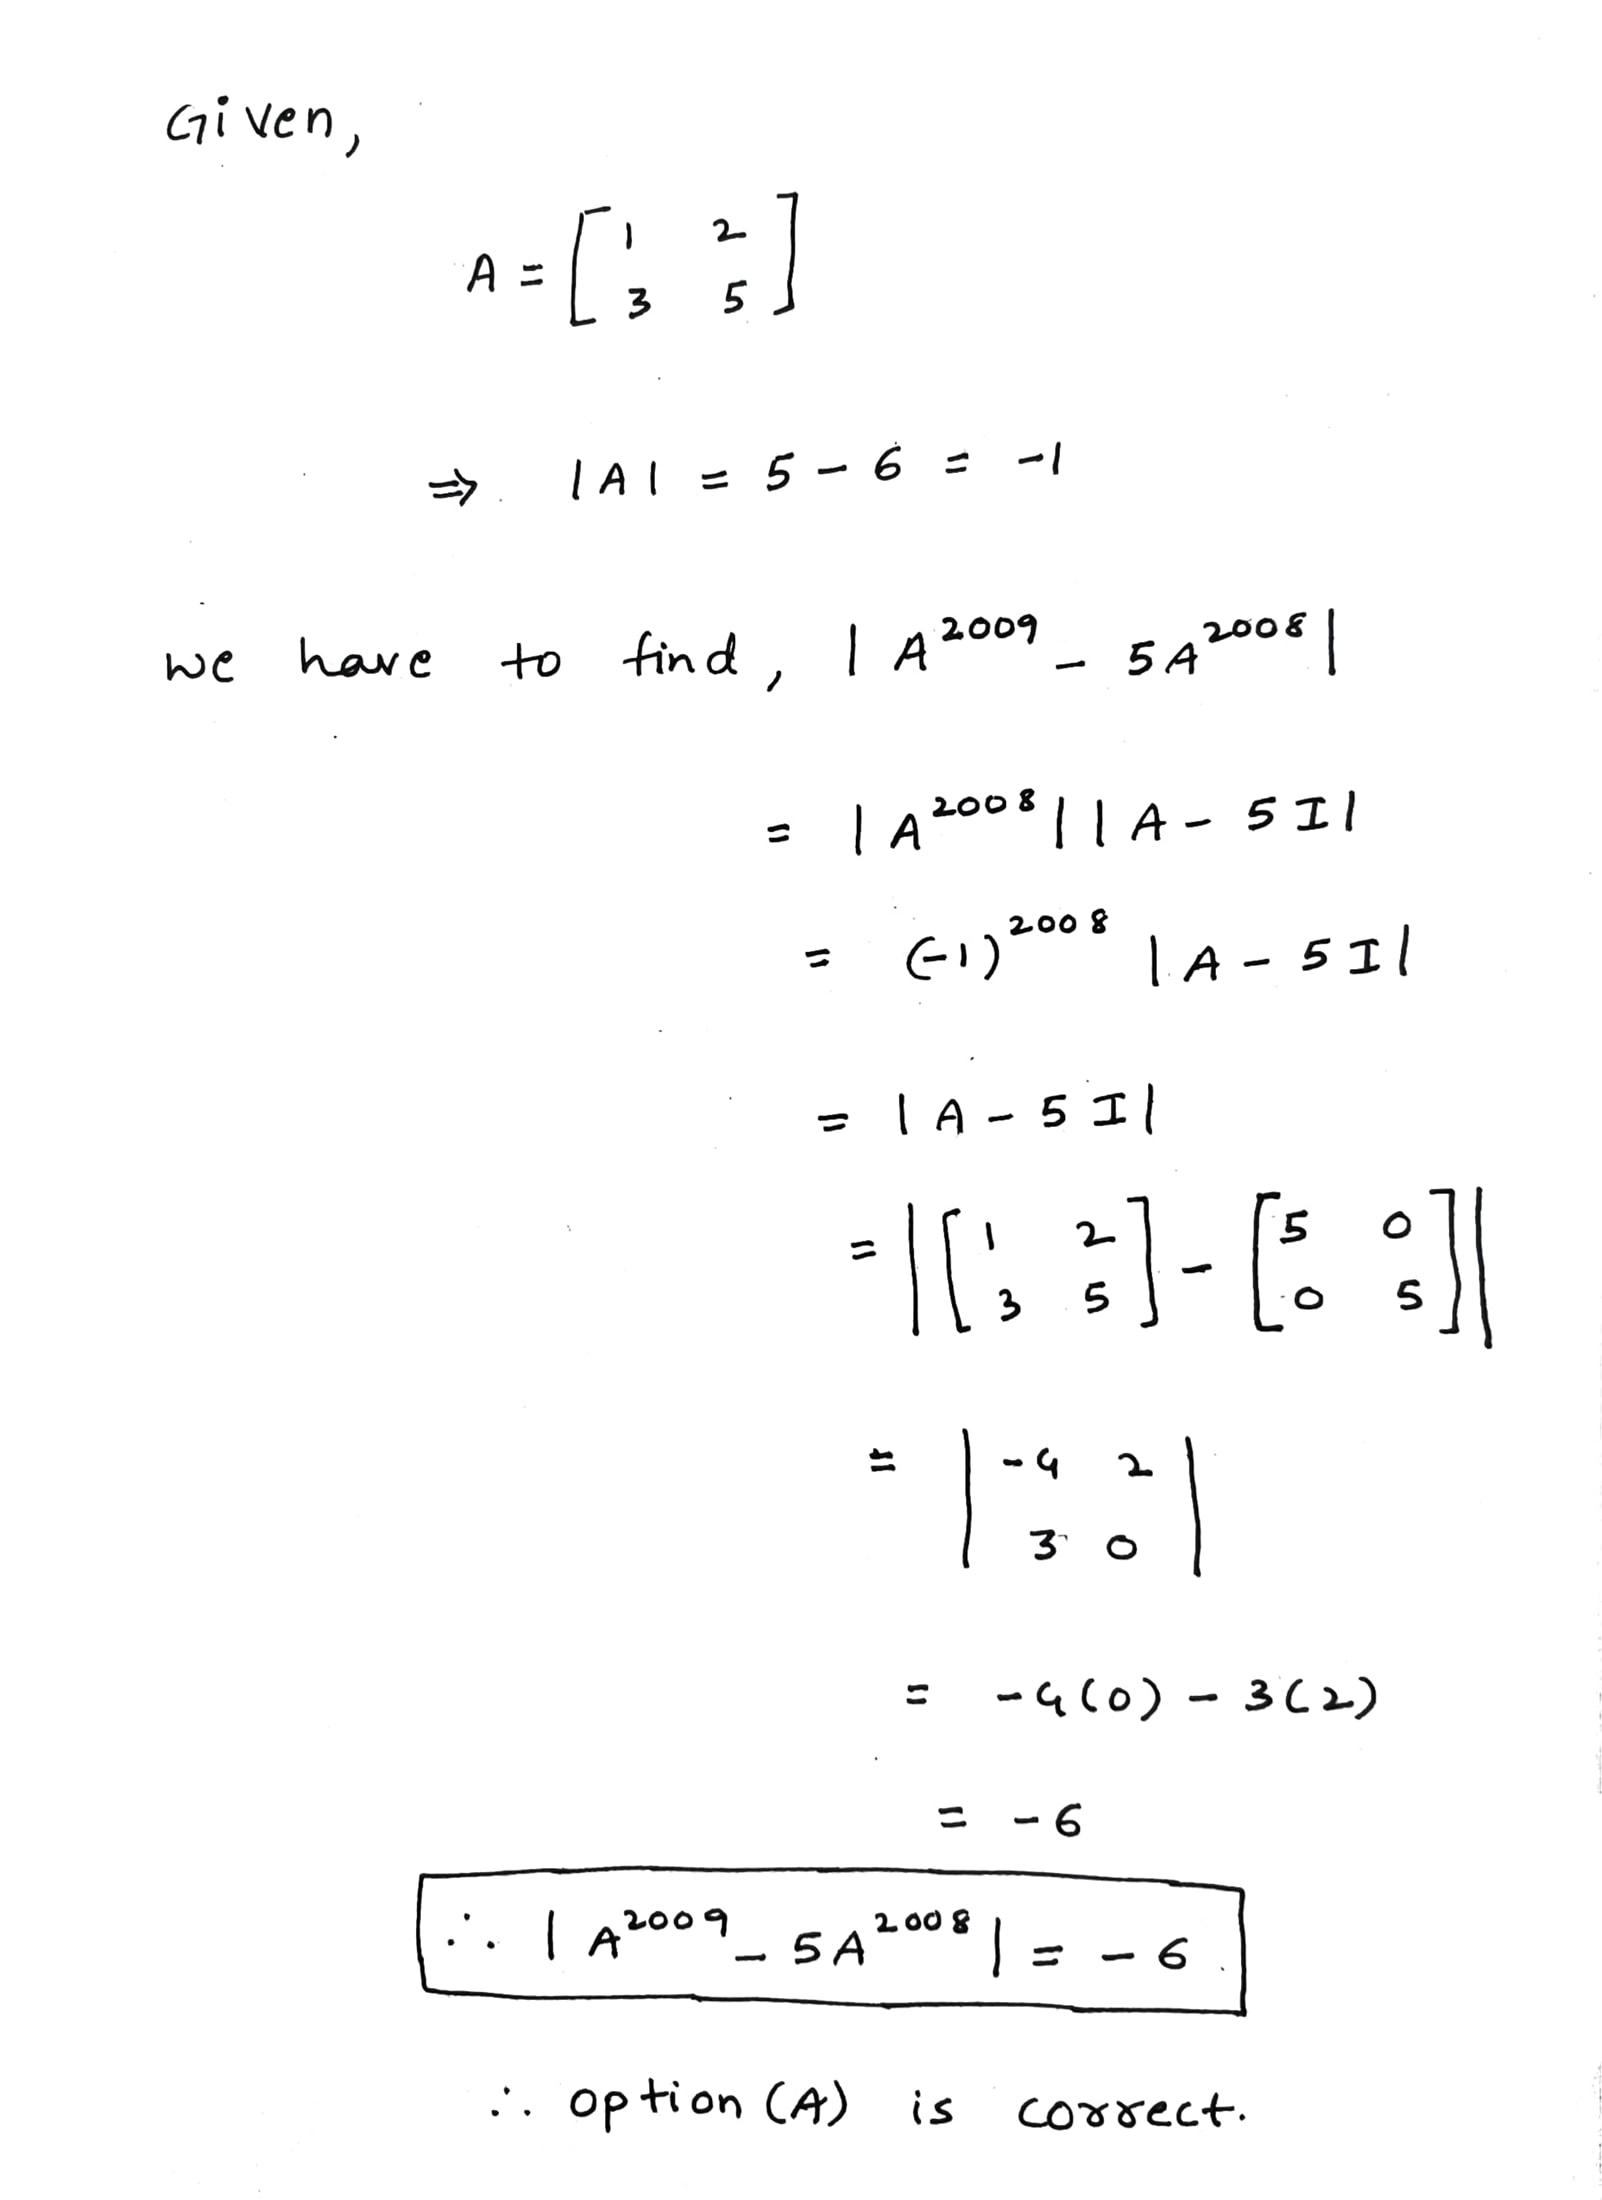 Given,
A = [ 1 2
3 5 ]
⇒ |A| = 5 - 6 = -1
we have to find, | A^2009 - 5A^2008 |
= | A^2008 | | A - 5I |
= (-1)^2008 | A - 5I |
= | A - 5I |
= | [ 1 2
3 5 ] - [ 5 0
0 5 ] |
= | -4 2
3 0 |
= -4(0) - 3(2)
= -6
∴ | A^2009 - 5A^2008 | = -6
∴ option (A) is correct.